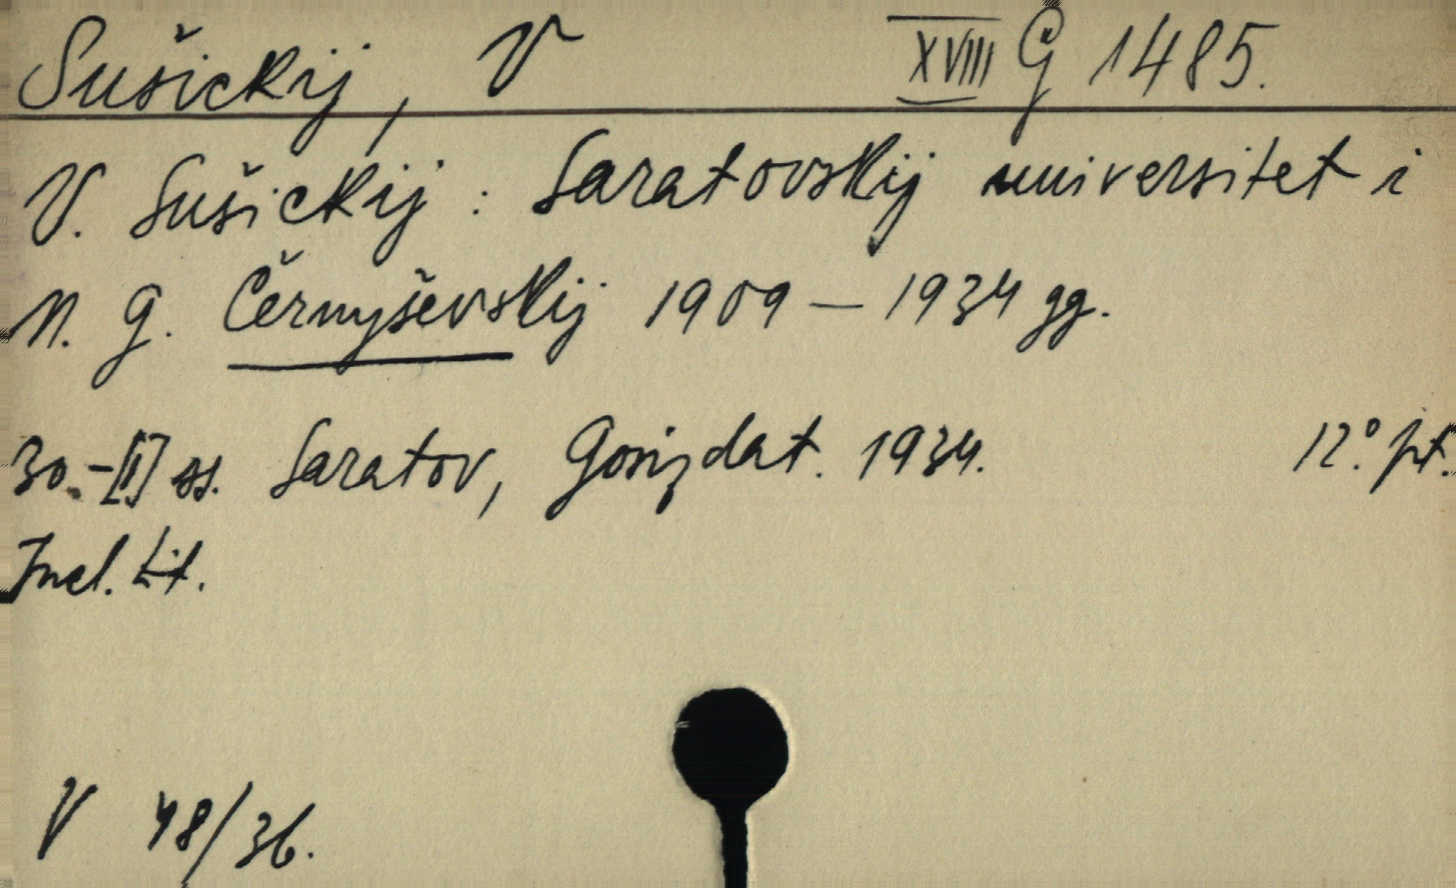 Sušickij, V XVIII G 1485.
V. Sušickij: Saratovskij universitet i
N. G. Černyševskij 1909 — 1934 gg.
30.-[1] ss. Saratov, Gosizdat. 1934. 12.° pt.
Incl. Lit.
V 48/36.